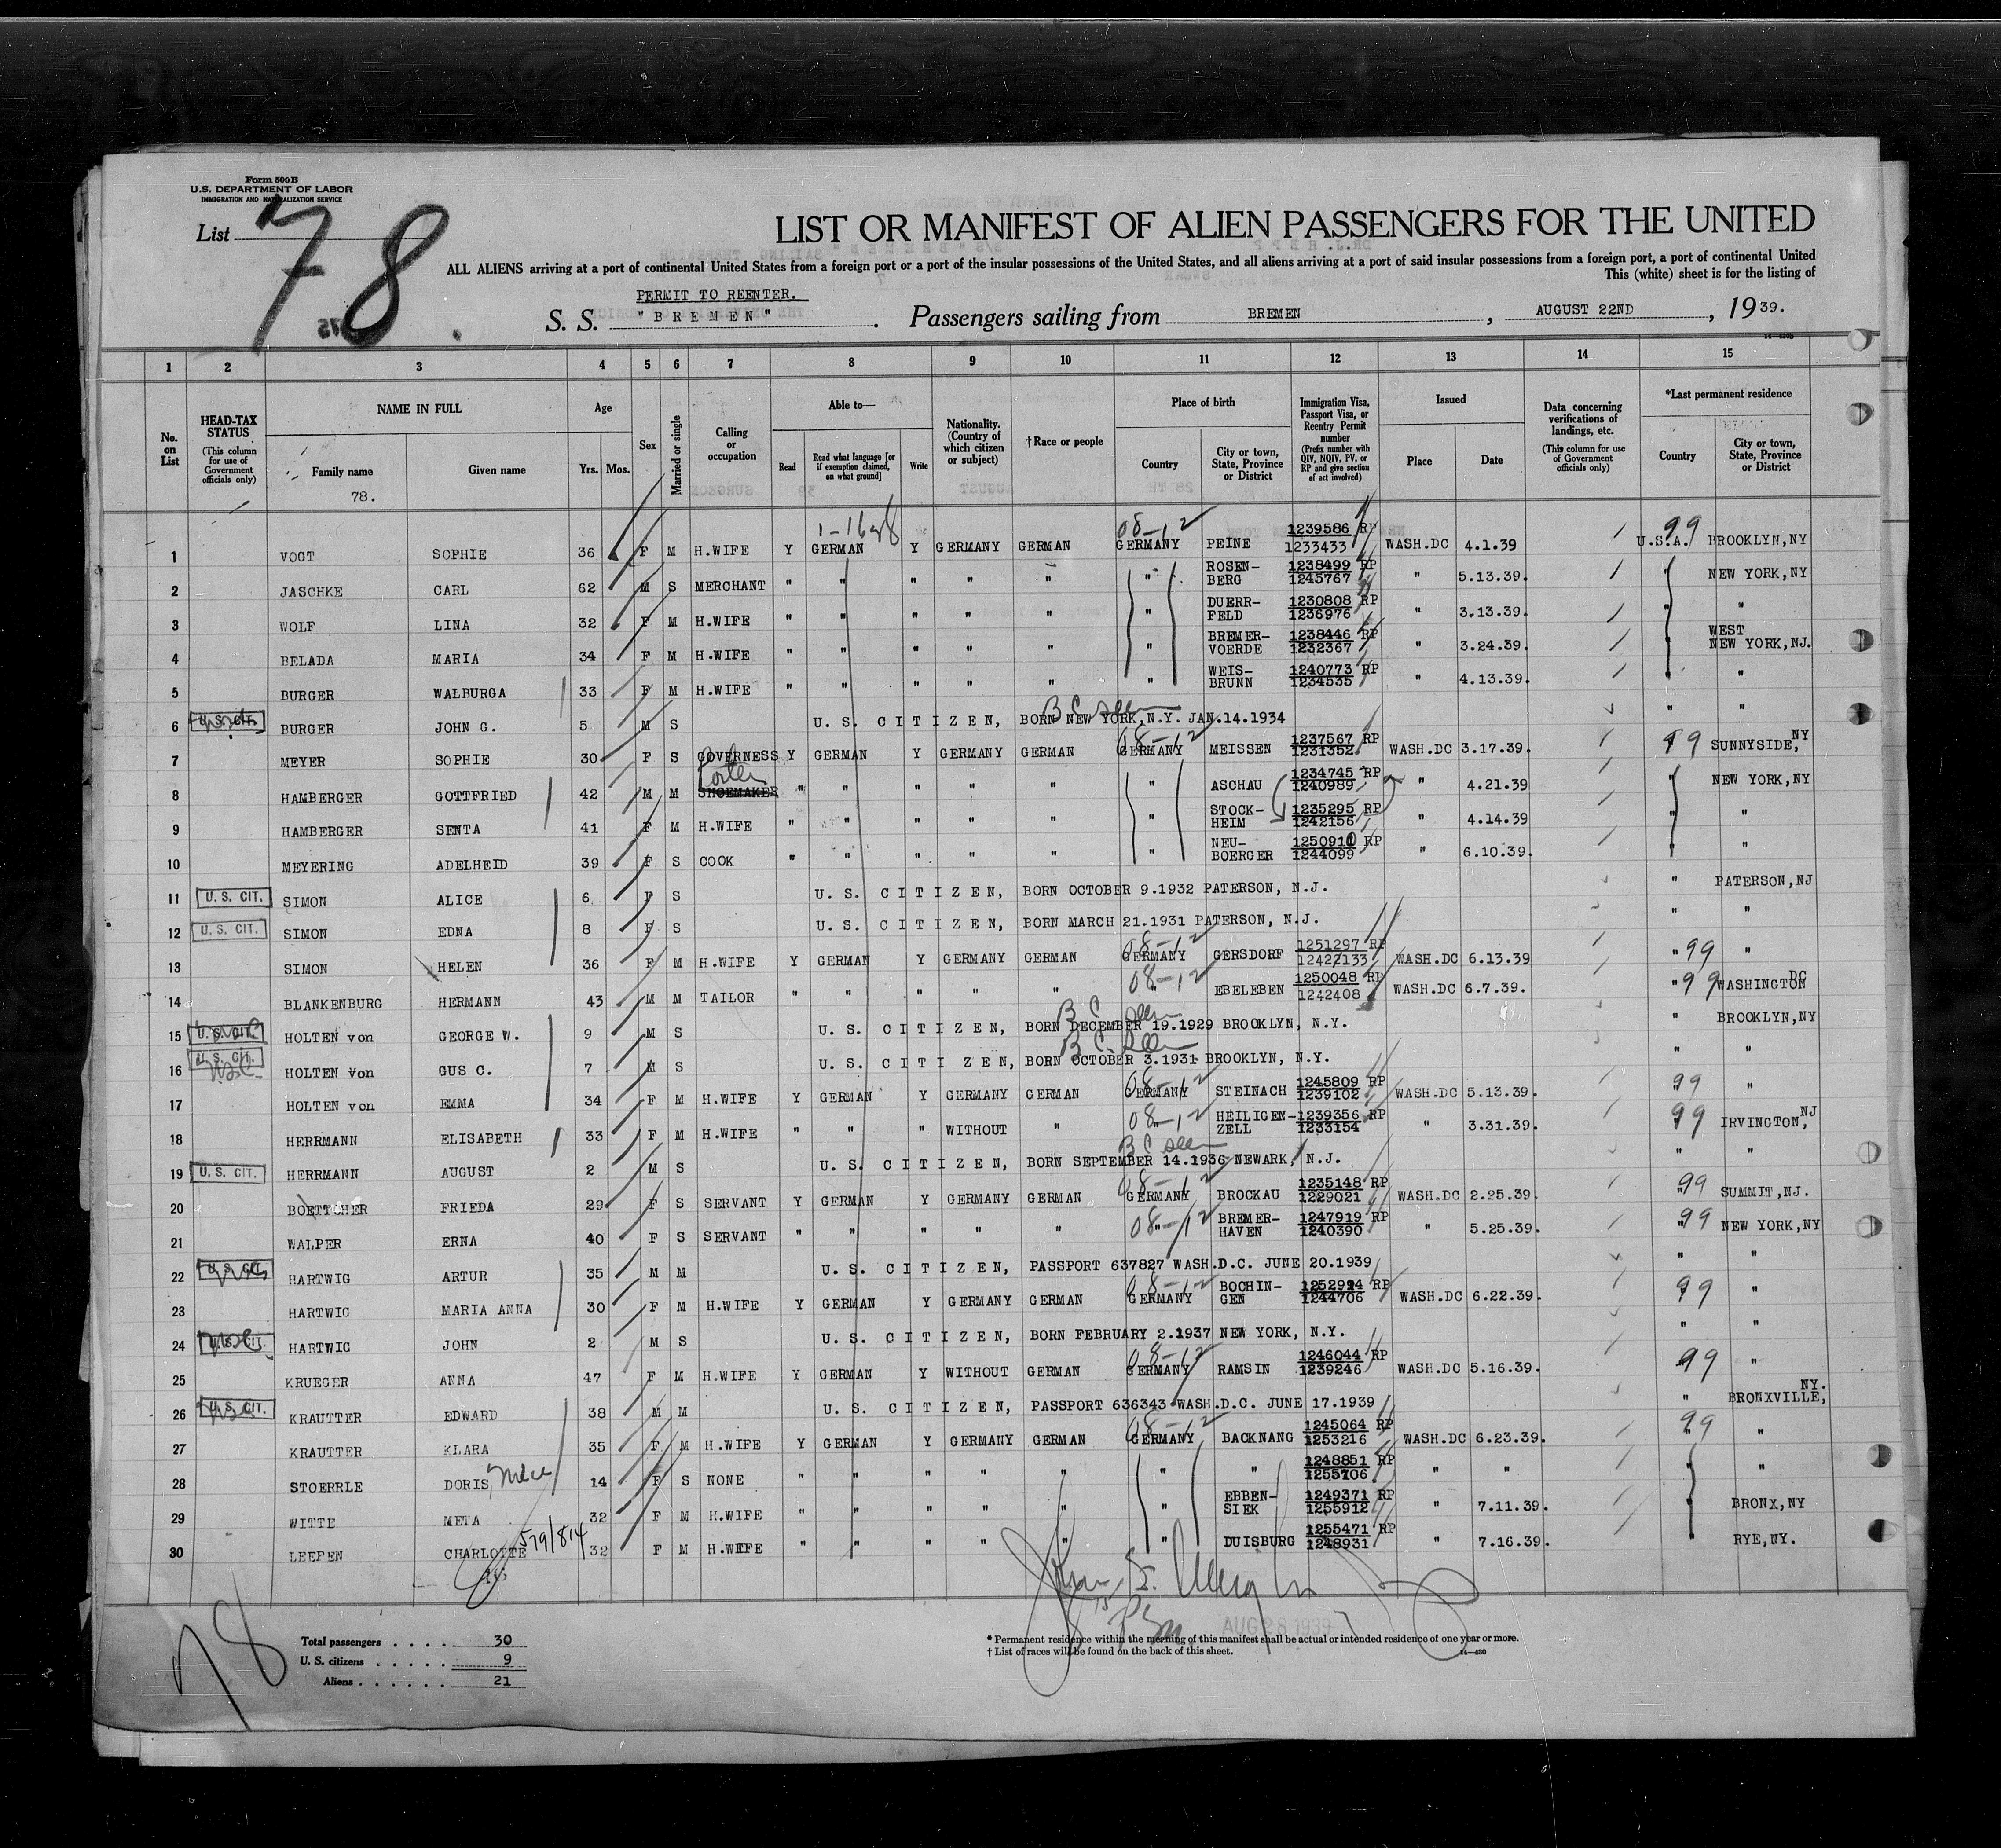 Form 500B
U.S. DEPARTMENT OF LABOR
IMMIGRATION AND NATURALIZATION SERVICE
List 78
LIST OR MANIFEST OF ALIEN PASSENGERS FOR THE UNITED
ALL ALIENS arriving at a port of continental United States from a foreign port or a port of the insular possessions of the United States, and all aliens arriving at a port of said insular possessions from a foreign port, a port of continental United
This (white) sheet is for the listing of
PERMIT TO REENTER.
S. S. "BREMEN". Passengers sailing from BREMEN, AUGUST 22ND, 1939.
1 2 3 4 5 6 7 8 9 10 11 12 13 14 15
No. on List
HEAD-TAX STATUS (This column for use of Government officials only)
NAME IN FULL
Family name Given name
78.
Age
Yrs. Mos.
Sex
Married or single
Calling or occupation
Able to—
Read
Read what language [or if exemption claimed, on what ground]
Write
Nationality. (Country of which citizen or subject)
†Race or people
Place of birth
Country
City or town, State, Province or District
Immigration Visa, Passport Visa, or Reentry Permit number (Prefix number with QIV, NQIV, PV, or RP and give section of act involved)
Issued
Place Date
Data concerning verifications of landings, etc. (This column for use of Government officials only)
*Last permanent residence
Country
City or town, State, Province or District
1 VOGT SOPHIE 36 F M H.WIFE Y GERMAN Y GERMANY GERMAN 08-12 GERMANY PEINE 1239586 RP 1233433 WASH.DC 4.1.39 99 U.S.A. BROOKLYN,NY
2 JASCHKE CARL 62 M S MERCHANT " " " " " " ROSEN-BERG 1238499 RP 1245767 " 5.13.39. " NEW YORK,NY
3 WOLF LINA 32 F M H.WIFE " " " " " " DUERR-FELD 1230808 RP 1236976 " 3.13.39. " "
4 BELADA MARIA 34 F M H.WIFE " " " " " " BREMER-VOERDE 1238446 RP 1232367 " 3.24.39. " WEST NEW YORK,NJ.
5 BURGER WALBURGA 33 F M H.WIFE " " " " " " WEIS-BRUNN 1240773 RP 1234535 " 4.13.39. " "
6 BURGER JOHN G. 5 M S U.S. CITIZEN, BORN NEW YORK,N.Y. JAN.14.1934 BC seen " "
7 MEYER SOPHIE 30 F S GOVERNESS Y GERMAN Y GERMANY GERMAN 08-12 GERMANY MEISSEN 1237567 RP 1231352 WASH.DC 3.17.39. 99 SUNNYSIDE, NY
8 HAMBERGER GOTTFRIED 42 M M SHOEMAKER " " " " " " ASCHAU 1234745 RP 1240989 " 4.21.39 " NEW YORK,NY
9 HAMBERGER SENTA 41 F M H.WIFE " " " " " " STOCK-HEIM 1235295 RP 1242156 " 4.14.39 " "
10 MEYERING ADELHEID 39 F S COOK " " " " " " NEU-BOERGER 1250910 RP 1244099 " 6.10.39. " "
11 U. S. CIT. SIMON ALICE 6 F S U.S. CITIZEN, BORN OCTOBER 9.1932 PATERSON, N.J. " PATERSON,NJ
12 U. S. CIT. SIMON EDNA 8 F S U.S. CITIZEN, BORN MARCH 21.1931 PATERSON, N.J. " "
13 SIMON HELEN 36 F M H.WIFE Y GERMAN Y GERMANY GERMAN 08-12 GERMANY GERSDORF 1251297 RP 12422133 WASH.DC 6.13.39 " 99 "
14 BLANKENBURG HERMANN 43 M M TAILOR " " " " " 08-12 " EBELEBEN 1250048 RP 1242408 WASH.DC 6.7.39. " 99 WASHINGTON DC
15 U. S. CIT. HOLTEN von GEORGE W. 9 M S U.S. CITIZEN, BORN DECEMBER 19.1929 BROOKLYN, N.Y. BC seen " BROOKLYN,NY
16 U. S. CIT. HOLTEN von GUS C. 7 M S U.S. CITIZEN, BORN OCTOBER 3.1931 BROOKLYN, N.Y. BC seen " "
17 HOLTEN von EMMA 34 F M H.WIFE Y GERMAN Y GERMANY GERMAN 08-12 GERMANY STEINACH 1245809 RP 1239102 WASH.DC 5.13.39. 99 " "
18 HERRMANN ELISABETH 33 F M H.WIFE " " " WITHOUT " 08-12 " HEILIGEN-ZELL 1239356 RP 1233154 " 3.31.39. 99 IRVINGTON, NJ
19 U. S. CIT. HERRMANN AUGUST 2 M S U.S. CITIZEN, BORN SEPTEMBER 14.1936 NEWARK, N.J. BC seen " "
20 BOETTCHER FRIEDA 29 F S SERVANT Y GERMAN Y GERMANY GERMAN 08-12 GERMANY BROCKAU 1235148 RP 1229021 WASH.DC 2.25.39. 99 SUMMIT,NJ.
21 WALPER ERNA 40 F S SERVANT " " " " " 08-12 " BREMER-HAVEN 1247919 RP 1240390 " 5.25.39. 99 NEW YORK,NY
22 U. S. CIT. HARTWIG ARTUR 35 M M U.S. CITIZEN, PASSPORT 637827 WASH.D.C. JUNE 20.1939 " "
23 HARTWIG MARIA ANNA 30 F M H.WIFE Y GERMAN Y GERMANY GERMAN 08-12 GERMANY BOCHIN-GEN 1244706 RP WASH.DC 6.22.39. 99 "
24 U.S. CIT. HARTWIG JOHN 2 M S U.S. CITIZEN, BORN FEBRUARY 2.1937 NEW YORK, N.Y. " "
25 KRUEGER ANNA 47 F M H.WIFE Y GERMAN Y WITHOUT GERMAN 08-12 GERMANY RAMSIN 1246044 RP 1239246 WASH.DC 5.16.39. 99 "
26 U. S. CIT. KRAUTTER EDWARD 38 M M U.S. CITIZEN, PASSPORT 636343 WASH.D.C. JUNE 17.1939 " BRONXVILLE, NY.
27 KRAUTTER KLARA 35 F M H.WIFE Y GERMAN Y GERMANY GERMAN 08-12 GERMANY BACKNANG 1245064 RP 1253216 WASH.DC 6.23.39. 99 "
28 STOERRLE DORIS, niece 14 F S NONE " " " " " " " 1248851 RP 1255706 " " " "
29 WITTE META 32 F M H.WIFE " " " " " " EBBEN-SIEK 1249371 RP 1255912 " 7.11.39. " BRONX,NY
30 LEEPEN CHARLOTTE 579/814 32 F M H.WIFE " " " " " " DUISBURG 1255471 RP 1248931 " 7.16.39. RYE,NY.
78
AUG 28 1939
Total passengers . . . . 30
U. S. citizens . . . . . 9
Aliens . . . . . . 21
* Permanent residence within the meaning of this manifest shall be actual or intended residence of one year or more.
† List of races will be found on the back of this sheet.
14—430